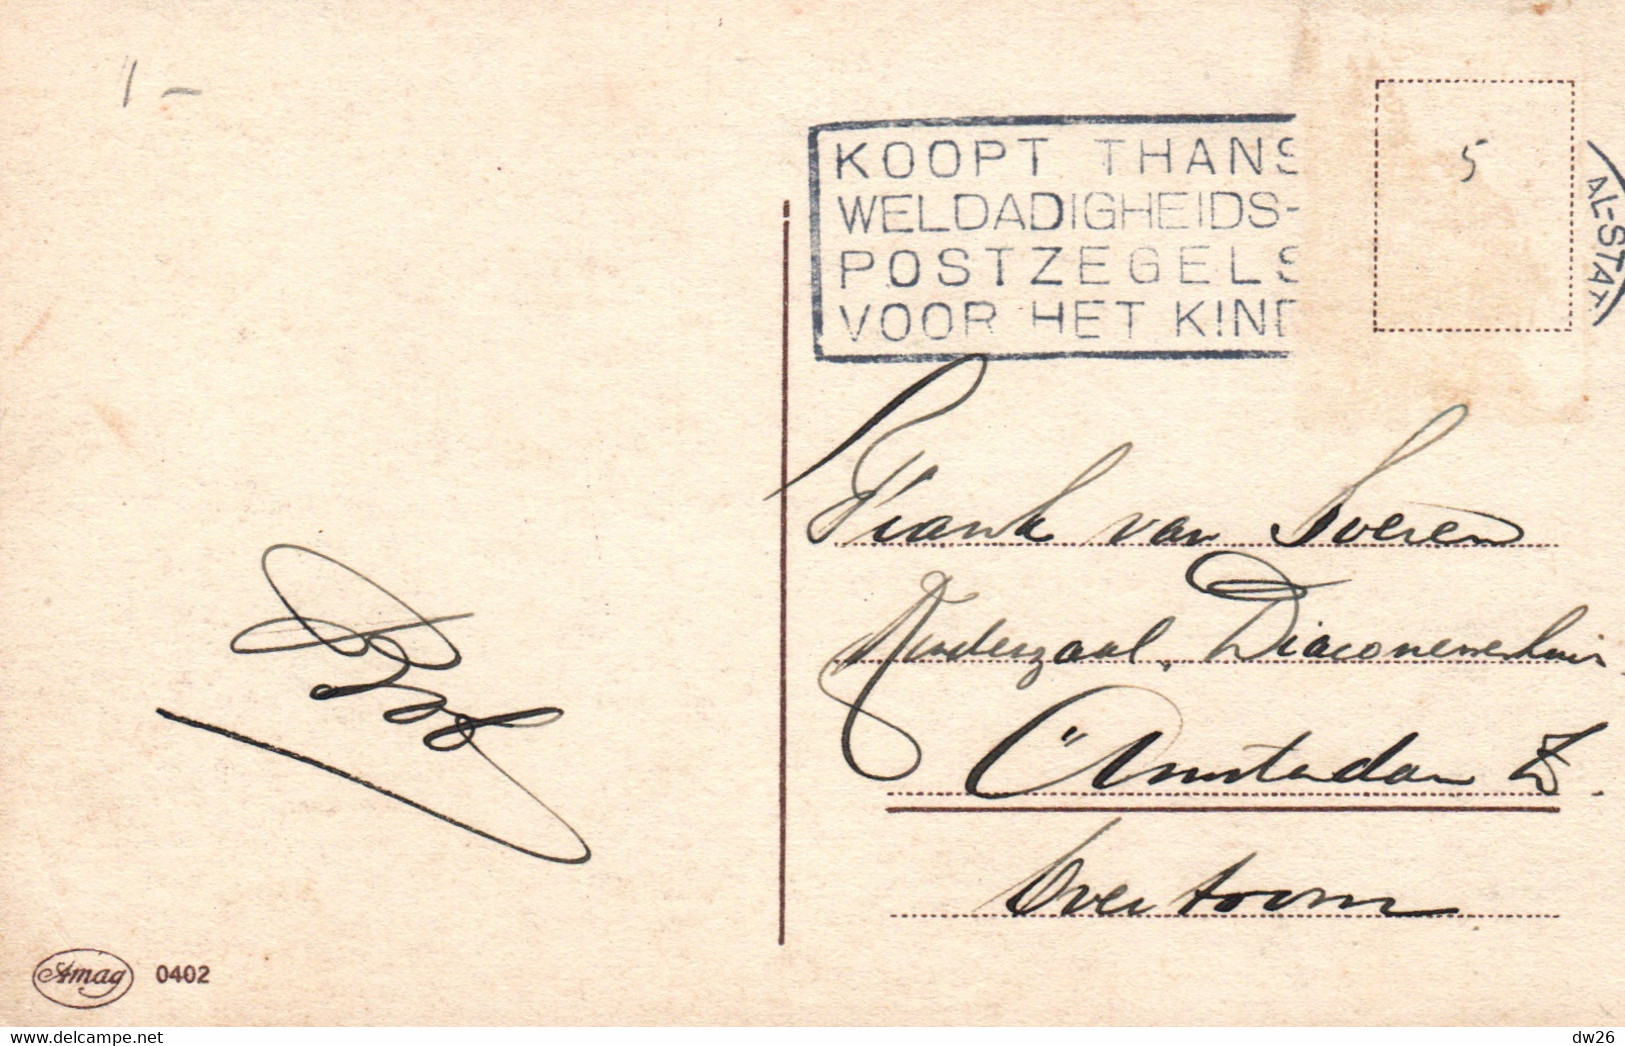 1 -
KOOPT THANS
WELDADIGHEIDS-
POSTZEGELS
VOOR HET KIND
5
AL-STAT
Frank van
Kinderzaal. Diaconessenhuis
Amsterdam Z.
Overtoom
Bob
Amag 0402
delcampe.net
dw26